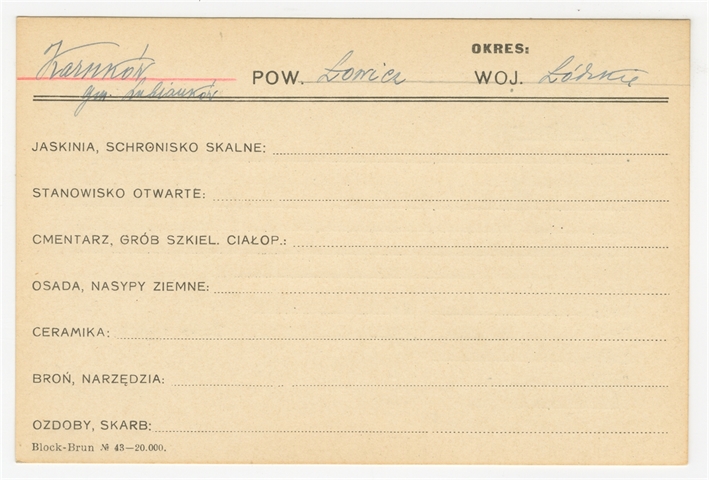 OKRES:
Karnków POW. Łowicz WOJ. Łódzkie
gm. Lubianków
JASKINIA, SCHRONISKO SKALNE:
STANOWISKO OTWARTE:
CMENTARZ, GRÓB SZKIEL. CIAŁOP.:
OSADA, NASYPY ZIEMNE:
CERAMIKA:
BROŃ, NARZĘDZIA:
OZDOBY, SKARB:
Block-Brun № 43—20.000.